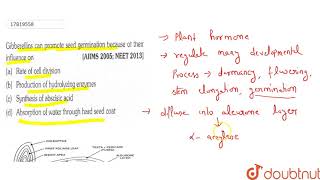 17819558
Gibberellins can promote seed germination because of their
influence on [AIIMS 2005; NEET 2013]
(a) Rate of cell division
(b) Production of hydrolyzing enzymes
(c) Synthesis of abscisic acid
(d) Absorption of water through hard seed coat
→ Plant hormone
→ regulate many developmental
Process → dormancy, flowering,
stem elongation, germination
→ diffuse into aleurone layer
α- amylase
doubtnut